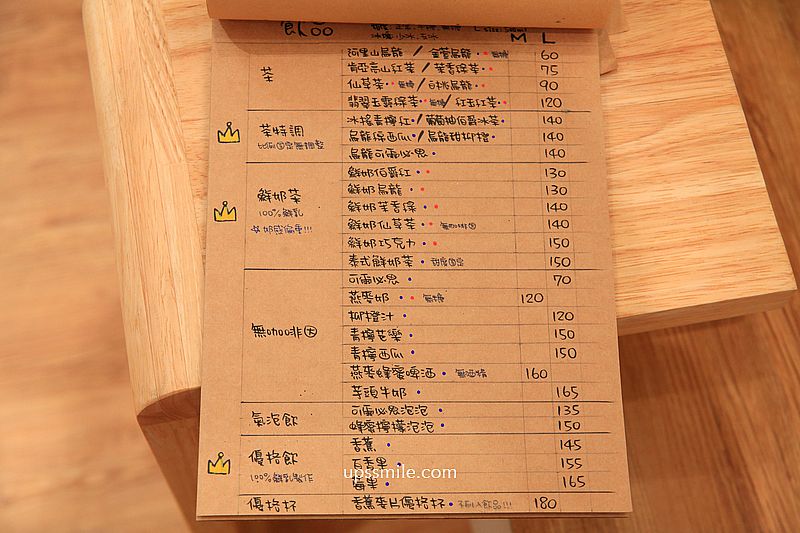 飲
M L
茶
阿里山烏龍 / 金萱烏龍 無糖 60
肯亞高山紅茶 / 茉香綠茶 75
仙草茶 無糖 / 白桃烏龍 90
翡翠玉露綠茶 無糖 / 紅玉紅茶 120
茶特調
比例固定無調整
冰搖青檸紅 / 葡萄柚伯爵冰茶 140
烏龍綠西瓜 / 烏龍甜柳橙 140
烏龍可爾必思 140
鮮奶茶
100%鮮乳
鮮奶伯爵紅 130
鮮奶烏龍 130
鮮奶茉香綠 140
鮮奶仙草茶 無咖啡因 140
鮮奶巧克力 150
泰式鮮奶茶 甜度固定 150
無咖啡因
可爾必思 70
燕麥奶 無糖 120
柳橙汁 120
青檸芭樂 150
青檸西瓜 150
燕麥蜂蜜啤酒 無酒精 160
芋頭牛奶 165
氣泡飲
可爾必思泡泡 135
蜂蜜檸檬泡泡 150
優格飲
100%鮮乳製作
香蕉 145
百香果 155
莓果 165
優格杯
香蕉麥片優格杯 不列入飲品!!! 180
upssmile.com